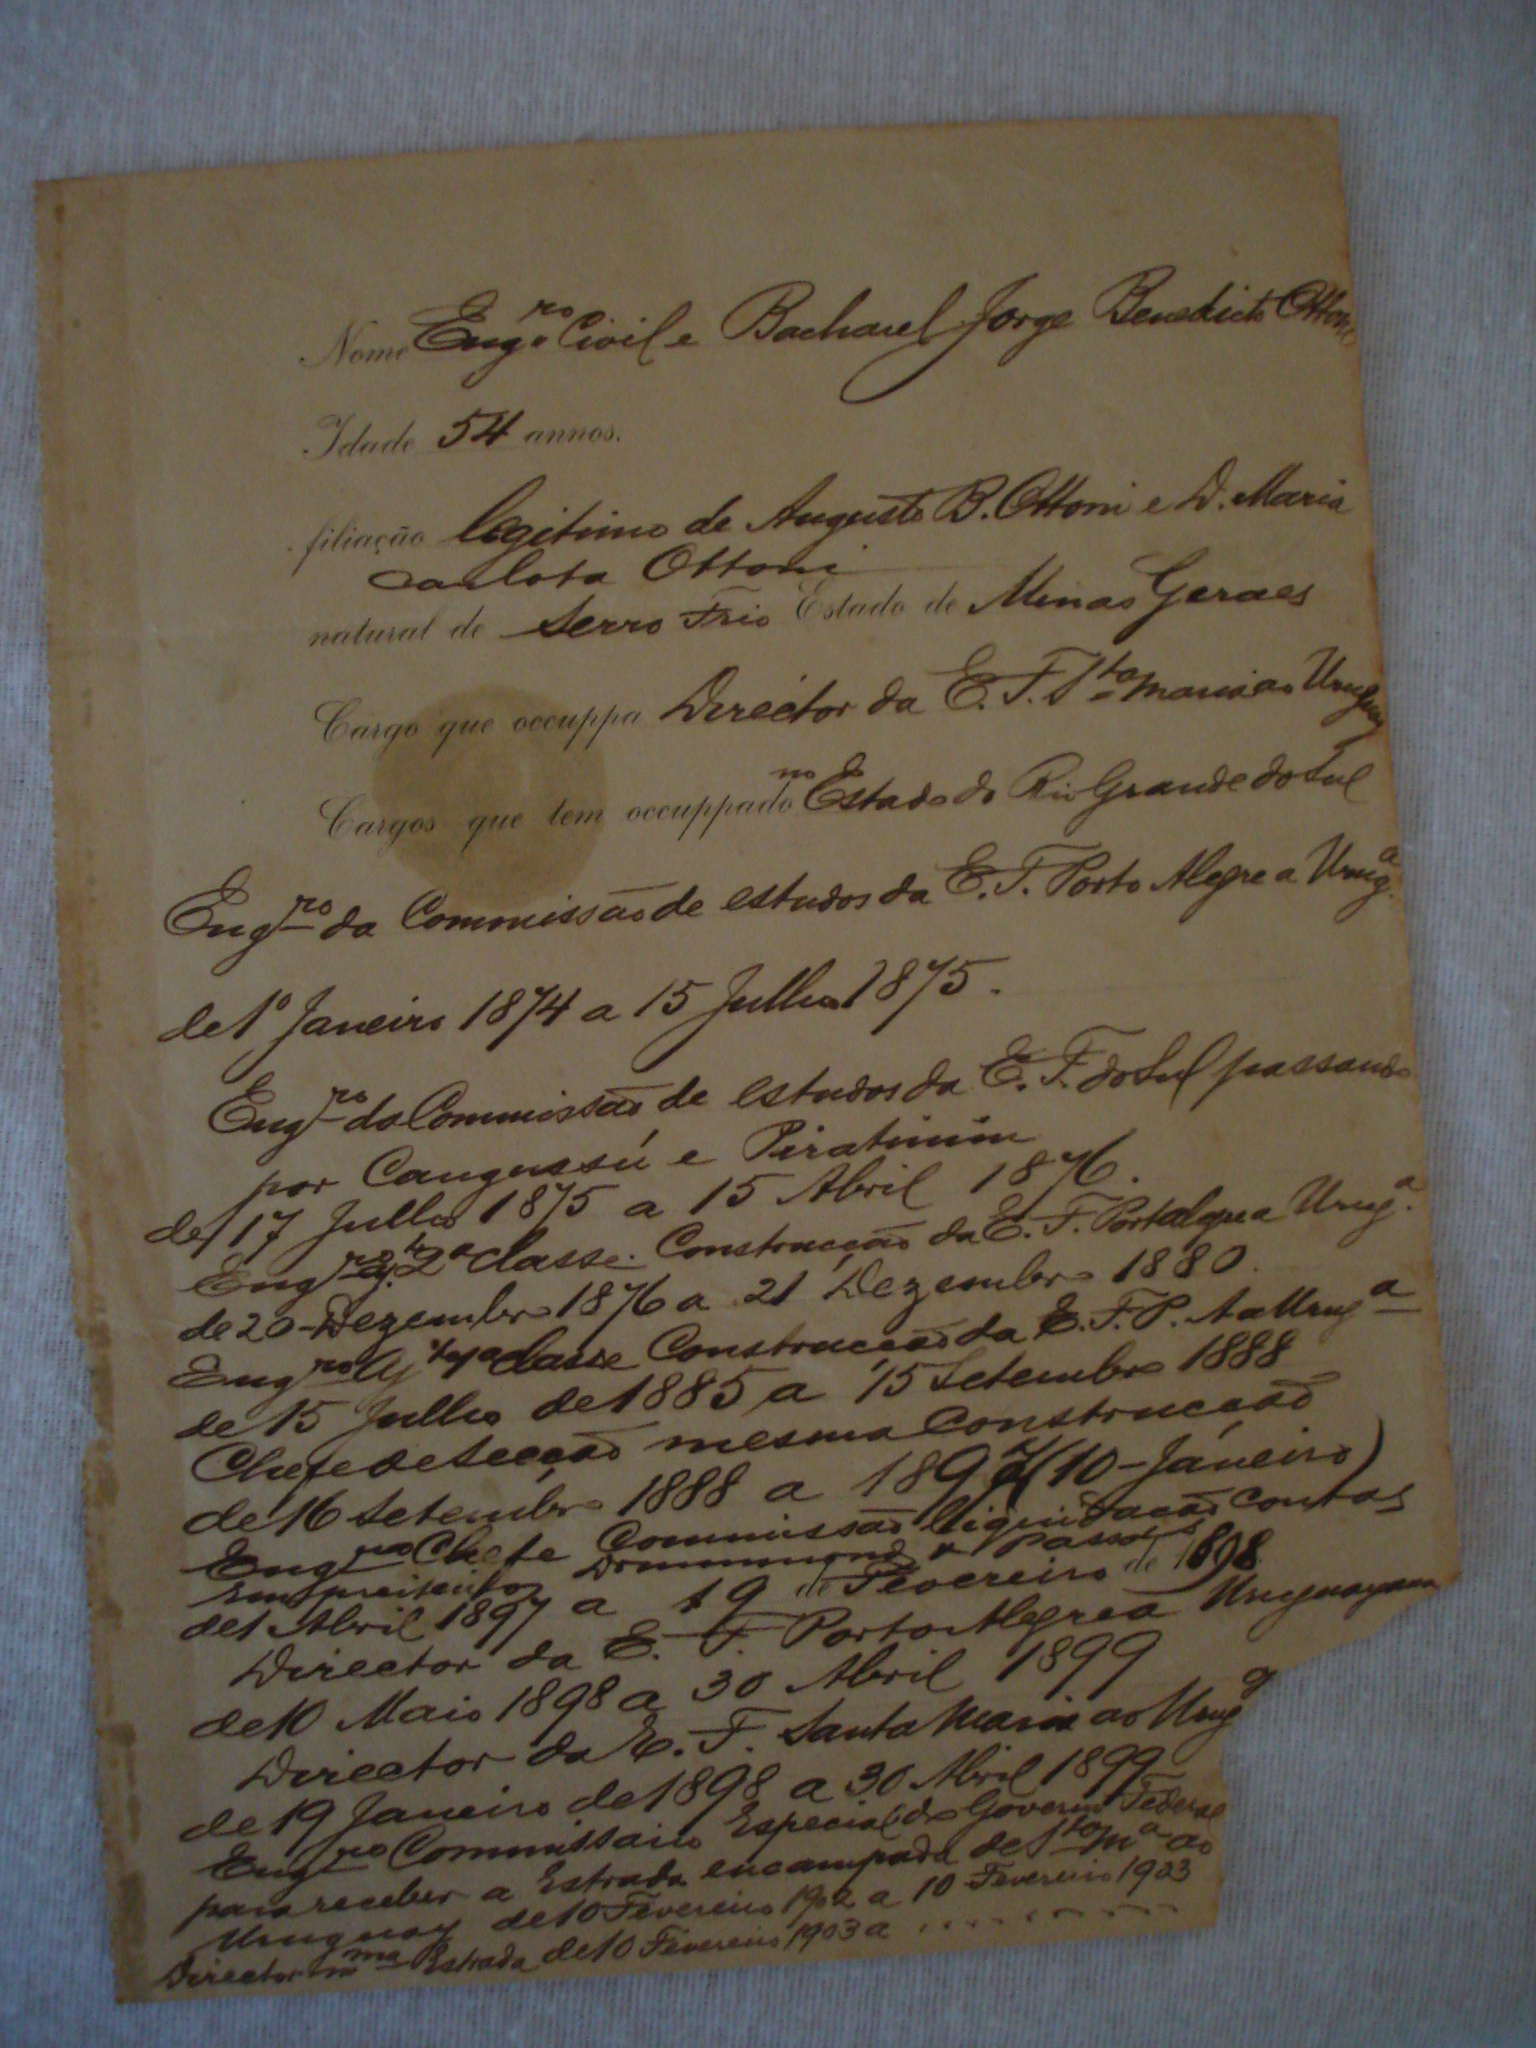 Nome Engro Civil e Bacharel Jorge Benedicto Ottoni
Idade 54 annos.
filiação legitimo de Augusto B. Ottoni e D. Maria
Carlota Ottoni
natural de Serro Frio Estado de Minas Geraes
Cargo que occuppa Director da E. F. Sta Maria ao Uruguay
Cargos que tem occuppado no Estado do Rio Grande do Sul
Engro da Commissão de estudos da E. F. Porto Alegre a Uruga.
de 1º Janeiro 1874 a 15 Julho 1875.
Engro da Commissão de estudos da E. F. do Sul passando
por Cangussú e Piratinim
de 17 Julho 1875 a 15 Abril 1876.
Engro 2a classe. Construcção da E. F. Portalegre a Uruga.
de 20 Dezembro 1876 a 21 Dezembro 1880.
Engro Aj classe Construcção da E. F. P. A a Uruga
de 15 Julho de 1885 a 15 Setembro 1888
Chefe de Secção mesma Construcção
de 16 Setembro 1888 a 1897 (10 Janeiro)
Engro Chefe Commissão liquidação contas
Empreiteiros Drummond & Passos
de 1 Abril 1897 a 19 de Fevereiro de 1898
Director da E. F. Porto Alegre a Uruguayana
de 10 Maio 1898 a 30 Abril 1899
Director da E. F. Santa Maria ao Uruga
de 19 Janeiro de 1898 a 30 Abril 1899
Engro Commissario Especial do Governo Federal
para receber a Estrada encampada de Sta Ma ao
Uruguay de 10 Fevereiro 1902 a 10 Fevereiro 1903
Director mma Estrada de 10 Fevereiro 1903 a . . . . . . . . .